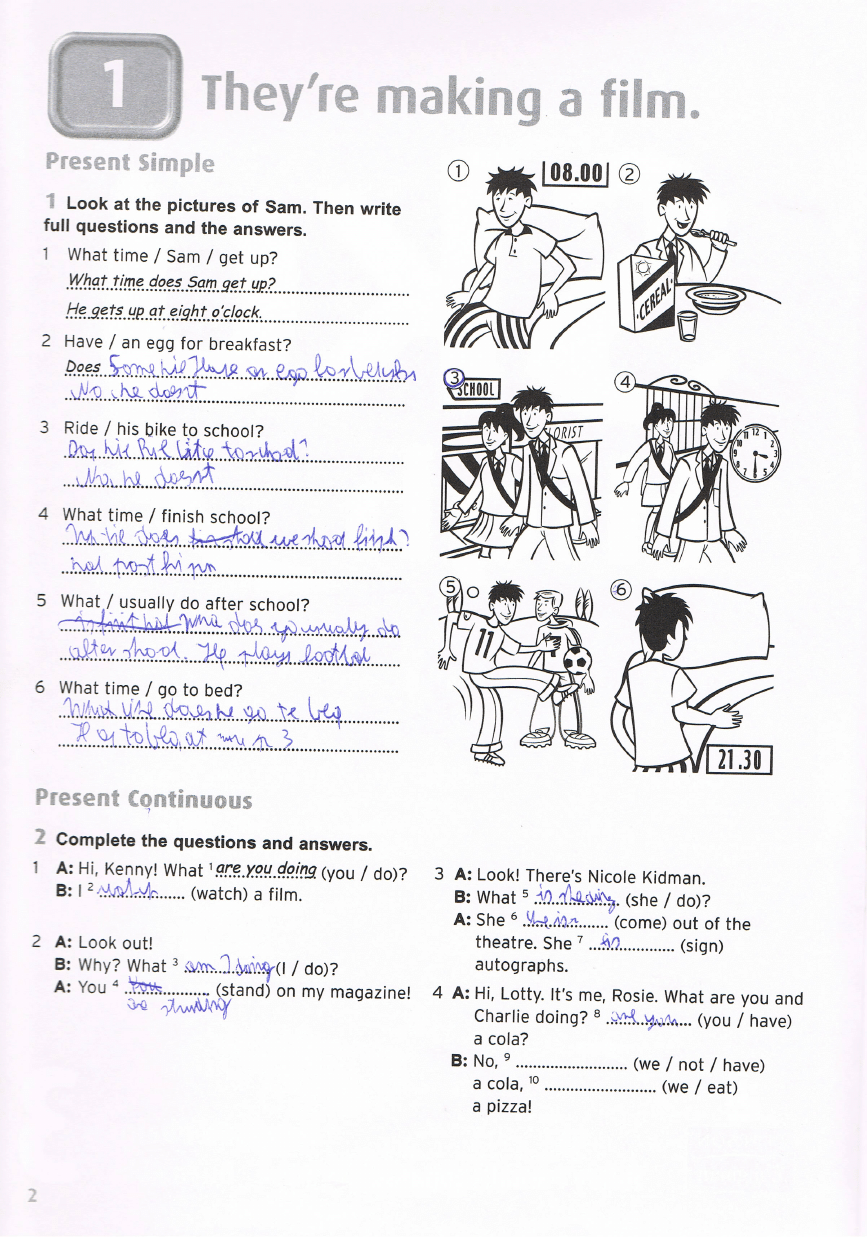 1
They're making a film.
Present Simple
1 Look at the pictures of Sam. Then write
full questions and the answers.
1 What time / Sam / get up?
What time does Sam get up?
He gets up at eight o'clock.
2 Have / an egg for breakfast?
Does
No he doesn't
3 Ride / his bike to school?
to school?
No he doesn't
4 What time / finish school?
does finish?
half past
5 What / usually do after school?
usually do
after shool. He plays footbal
6 What time / go to bed?
does he go te bed
to bed at
1
08.00
2
CEREAL
3
SCHOOL
FLORIST
4
12 1 2 3 4 5 6 7 8 9 10 11
5
11
6
21.30
Present Continuous
2 Complete the questions and answers.
1 A: Hi, Kenny! What 1 are you doing (you / do)?
B: I 2 watch (watch) a film.
2 A: Look out!
B: Why? What 3 am I doing (I / do)?
A: You 4 (stand) on my magazine!
3 A: Look! There's Nicole Kidman.
B: What 5 is (she / do)?
A: She 6 (come) out of the
theatre. She 7 is (sign)
autographs.
4 A: Hi, Lotty. It's me, Rosie. What are you and
Charlie doing? 8 are you (you / have)
a cola?
B: No, 9 (we / not / have)
a cola, 10 (we / eat)
a pizza!
2